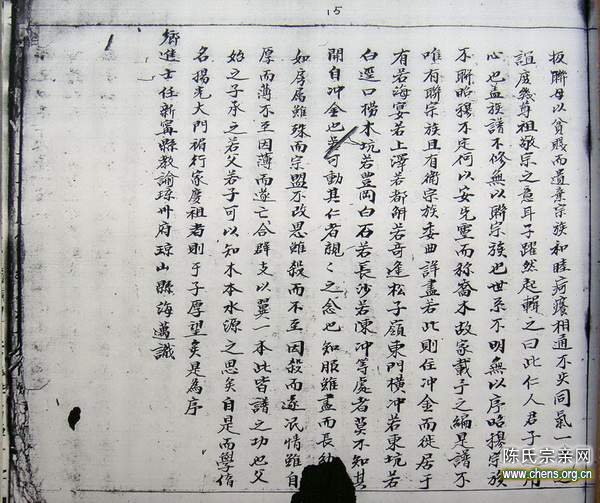 15
扳聯毋以貧賤而遺棄宗族和睦疴癢相通不失同氣
誼庶幾尊祖敬宗之意耳子躍然起輯之曰此仁人君子
心也蓋族譜不修無以聯宗族也世系不明無以序昭穆宗族
不聯昭穆不定何以安先靈而稱裔永故家載于之編是譜不
唯有聯宗族且有衛宗族委曲詳盡若此則在冲金而徙居于
有若海宴若上澤若都斛若奇逢松子嶺東門橫冲若東坑若
白選口撈木坑若豐岡白石若長沙若陳冲等處者莫不知其
開自冲金也 可動其仁者親々之念也知服雖盡而長幼
如房屬雖殊而宗盟不改恩雖殺而不至因殺而遂泯情雖自
厚而薄不至因薄而遂亡合群支以翼一本此皆譜之功也父
始之子承之若父若子可以知木本水源之思矣自是而學脩
名揚光大門裕行家慶祖者則于子厚望矣是為序
鄉進士任新甯縣教諭瓊州府瓊山縣海邁識
陈氏宗亲网
www.chens.org.cn